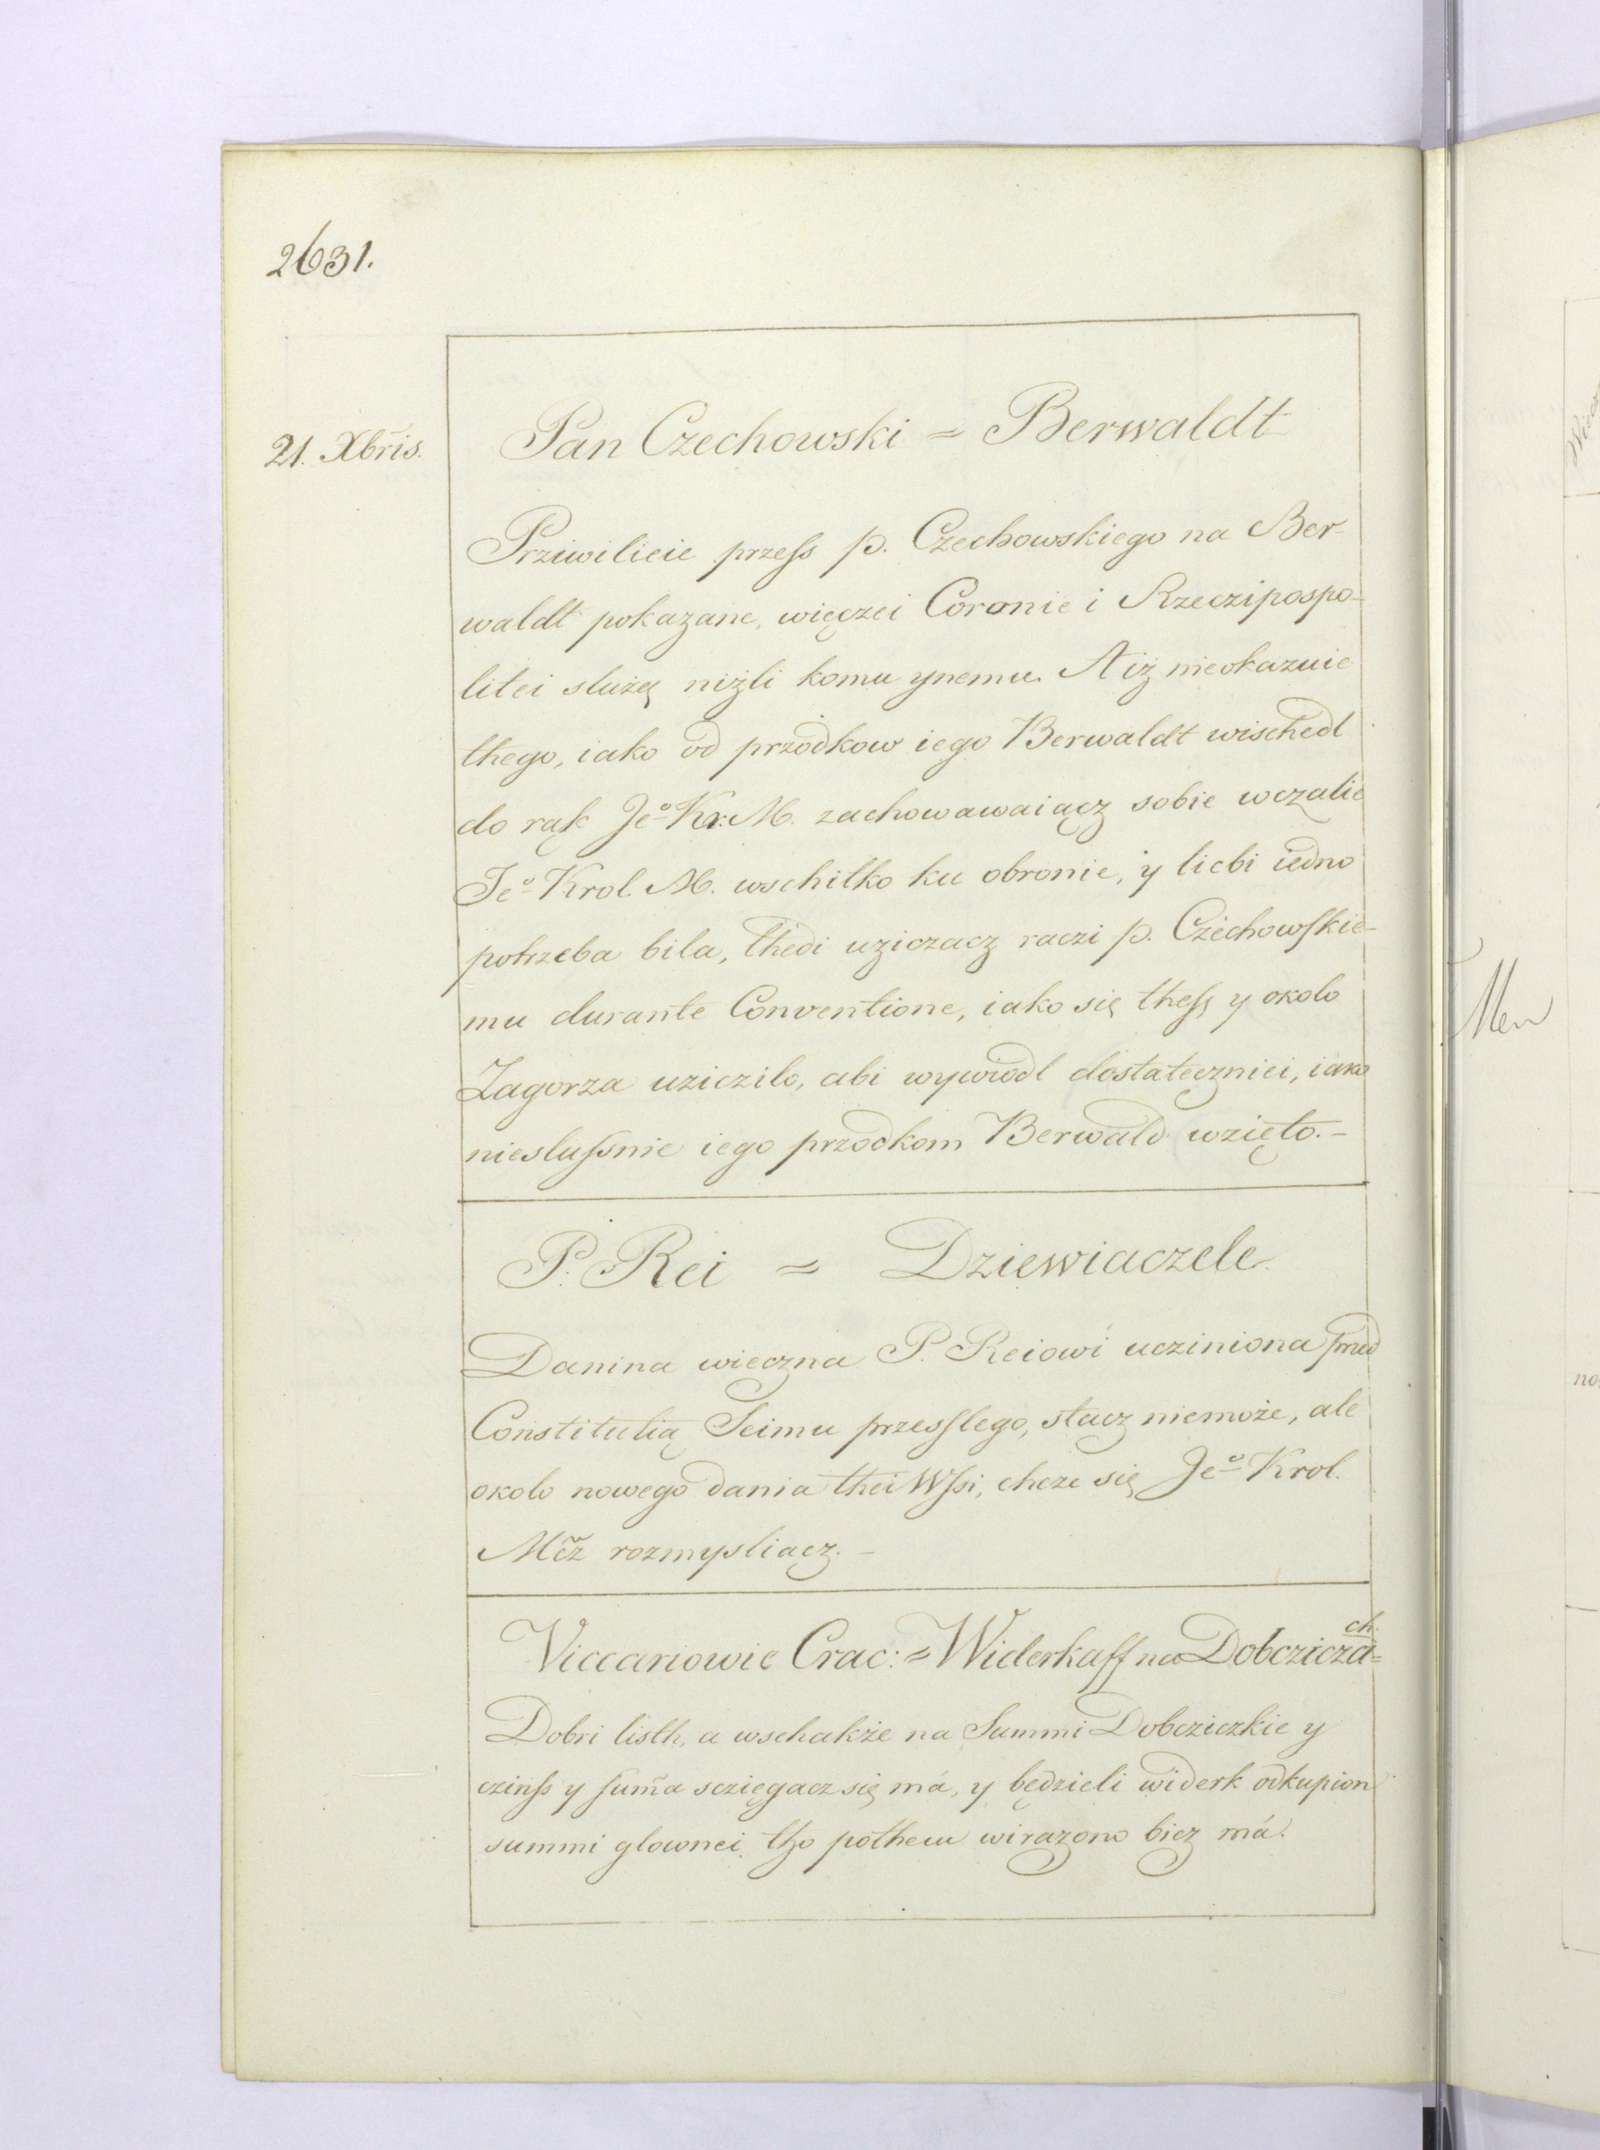 2631.
21. Xbris.
Pan Czechowski = Berwaldt
Prziwilieie przess p. Czechowskiego na Ber-
waldt pokazane, więczei Coronie i Rzeczipospo-
litei służą niżli komu ynemu. A iż nieokazuie
thego, iako od przodkow iego Berwaldt wischedl
do rąk Jeo Kr: M. zachowawaiącz sobie wczalie
Jeo Krol M. wschitko ku obronie, y liebi iedno
potrzeba bila, thedi uziczacz raczi p. Czechowskie-
mu durante Conventione, iako się thess y okolo
Zagorza uziczilo, abi wywiodl dostateczniei, iako
nieslussnie iego przodkom Berwald wzięto. -
P. Rei = Dziewiaczele
Danina wieczna P. Reiowi ucziniona przed
Constitutią Seimu przesslego, stacz niemoże, ale
okolo nowego dania thei Wssi, chcze się Jeo Krol.
Mcz rozmysliacz. -
Viccariowie Crac: = Widerkaff na Dobczicza=
ch.
Dobri listh, a wschakże na Summi Dobcziczkie y
czinss y suma scziegacz się má, y będzieli widerk odkupion
summi glownei, tho pothem wirazono bicz má.
Men